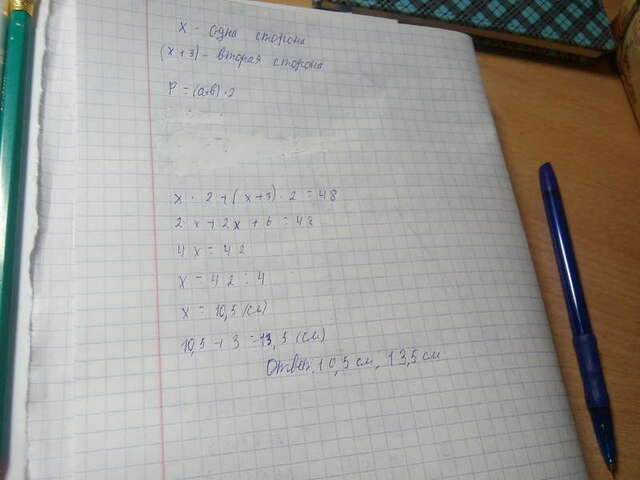 X - одна сторона
(x+3) - вторая сторона
P = (a+b)·2
x · 2 + (x+3) · 2 = 48
2x + 2x + 6 = 48
4x = 42
x = 42 : 4
x = 10,5 (см)
10,5 + 3 = 13,5 (см)
Ответ. 10,5 см, 13,5 см